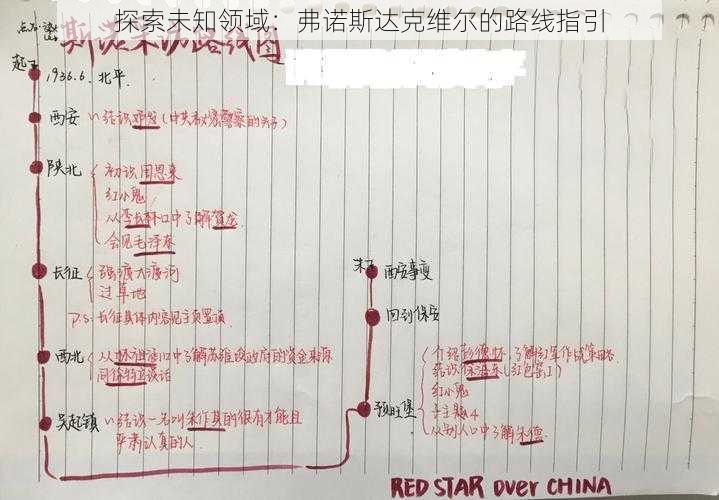 探索未知领域：弗诺斯达克维尔的路线指引
斯诺采访路线图
起
1936.6. 北平.
西安 结识邓发(中共秘密警察的头子)
陕北
初识周恩来
红小鬼
从李长林口中了解贺龙
会见毛泽东
长征
强渡大渡河
过草地
P.S: 长征具体内容见主页置顶.
西北
从林祖涵口中了解苏维埃政府的资金来源
同徐特立谈话
吴起镇 结识一名叫朱作其的很有才能且
严肃认真的人.
末
西安事变
回到保安
预旺堡
介绍彭德怀,了解红军作战策略.
结识徐海东(红色窑工)
红小鬼
从别人口中了解朱德.
RED STAR OVER CHINA